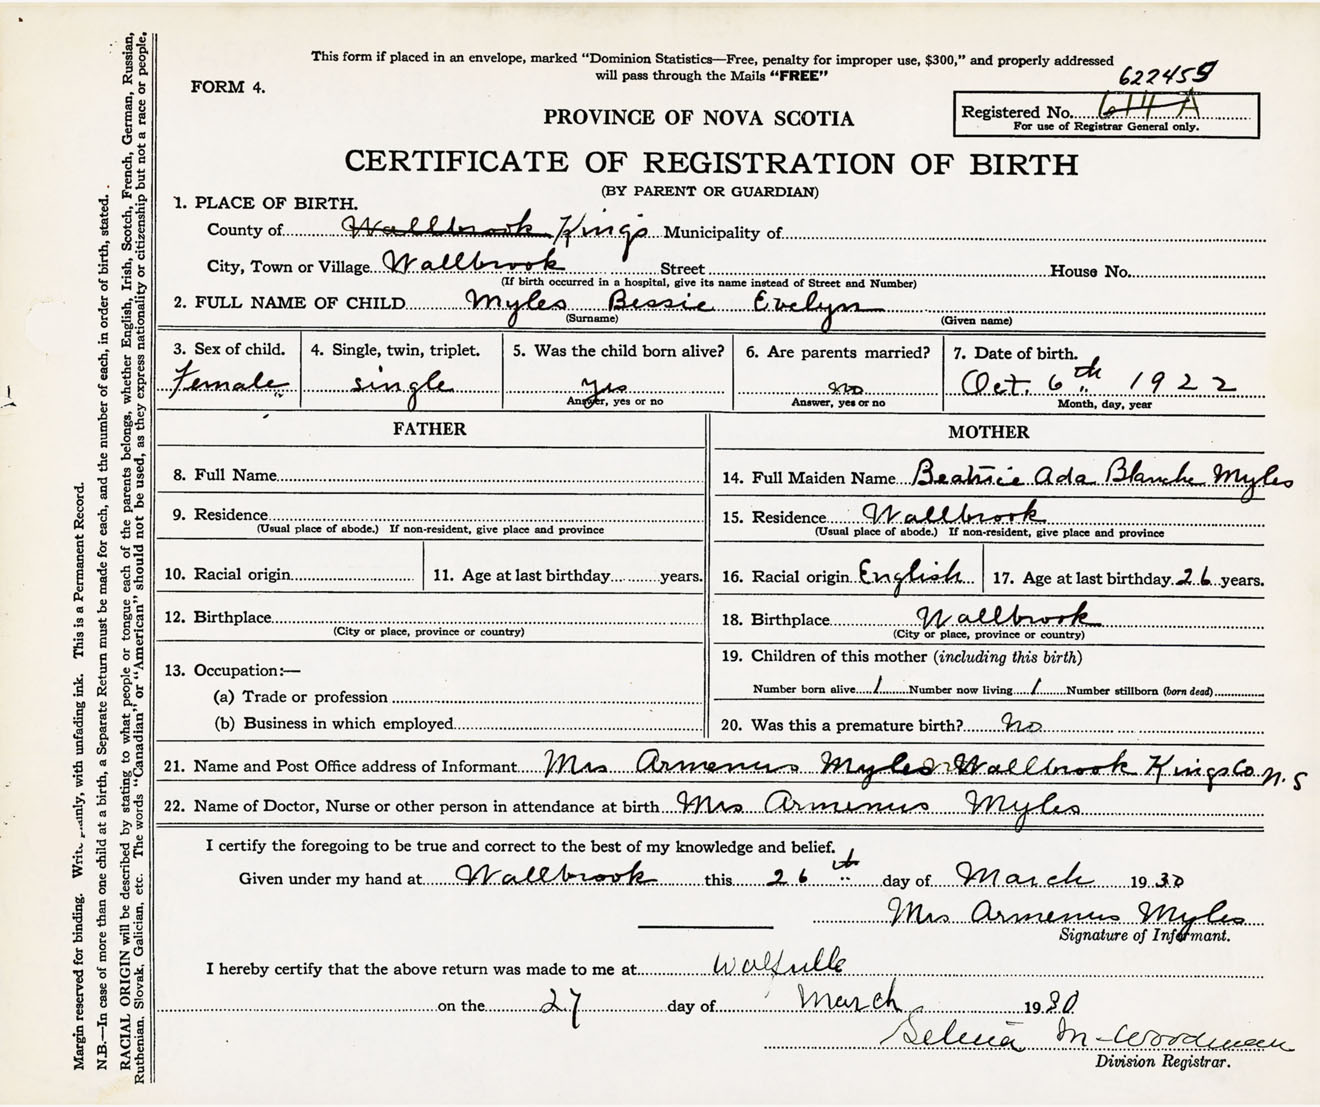 This form if placed in an envelope, marked “Dominion Statistics—Free, penalty for improper use, $300,” and properly addressed
will pass through the Mails “FREE”
622459
FORM 4.
Registered No. 614 A
For use of Registrar General only.
PROVINCE OF NOVA SCOTIA
CERTIFICATE OF REGISTRATION OF BIRTH
(BY PARENT OR GUARDIAN)
1. PLACE OF BIRTH.
County of Wallbrook Kings Municipality of
City, Town or Village Wallbrook Street House No.
(If birth occurred in a hospital, give its name instead of Street and Number)
2. FULL NAME OF CHILD Myles Bessie Evelyn
(Surname) (Given name)
3. Sex of child. 4. Single, twin, triplet. 5. Was the child born alive? 6. Are parents married? 7. Date of birth.
Female single yes no Oct. 6th 1922
Answer, yes or no Answer, yes or no Month, day, year
FATHER
8. Full Name
9. Residence
(Usual place of abode.) If non-resident, give place and province
10. Racial origin 11. Age at last birthday years.
12. Birthplace
(City or place, province or country)
13. Occupation:—
(a) Trade or profession
(b) Business in which employed
MOTHER
14. Full Maiden Name Beatrice Ada Blanche Myles
15. Residence Wallbrook
(Usual place of abode.) If non-resident, give place and province
16. Racial origin English 17. Age at last birthday 26 years.
18. Birthplace Wallbrook
(City or place, province or country)
19. Children of this mother (including this birth)
Number born alive 1 Number now living 1 Number stillborn (born dead)
20. Was this a premature birth? no
21. Name and Post Office address of Informant Mrs Armenus Myles Wallbrook Kings Co N.S
22. Name of Doctor, Nurse or other person in attendance at birth Mrs Armenus Myles
I certify the foregoing to be true and correct to the best of my knowledge and belief.
Given under my hand at Wallbrook this 26th day of March 1930
Mrs Armenus Myles
Signature of Informant.
I hereby certify that the above return was made to me at Wolfville
on the 27 day of March 1930
Selena M Woodman
Division Registrar.
Margin reserved for binding. Write plainly, with unfading ink. This is a Permanent Record.
N.B.—In case of more than one child at a birth, a Separate Return must be made for each, and the number of each, in order of birth, stated.
RACIAL ORIGIN will be described by stating to what people or tongue each of the parents belongs, whether English, Irish, Scotch, French, German, Russian,
Ruthenian, Slovak, Galician, etc. The words “Canadian” or “American” should not be used, as they express nationality or citizenship but not a race or people.